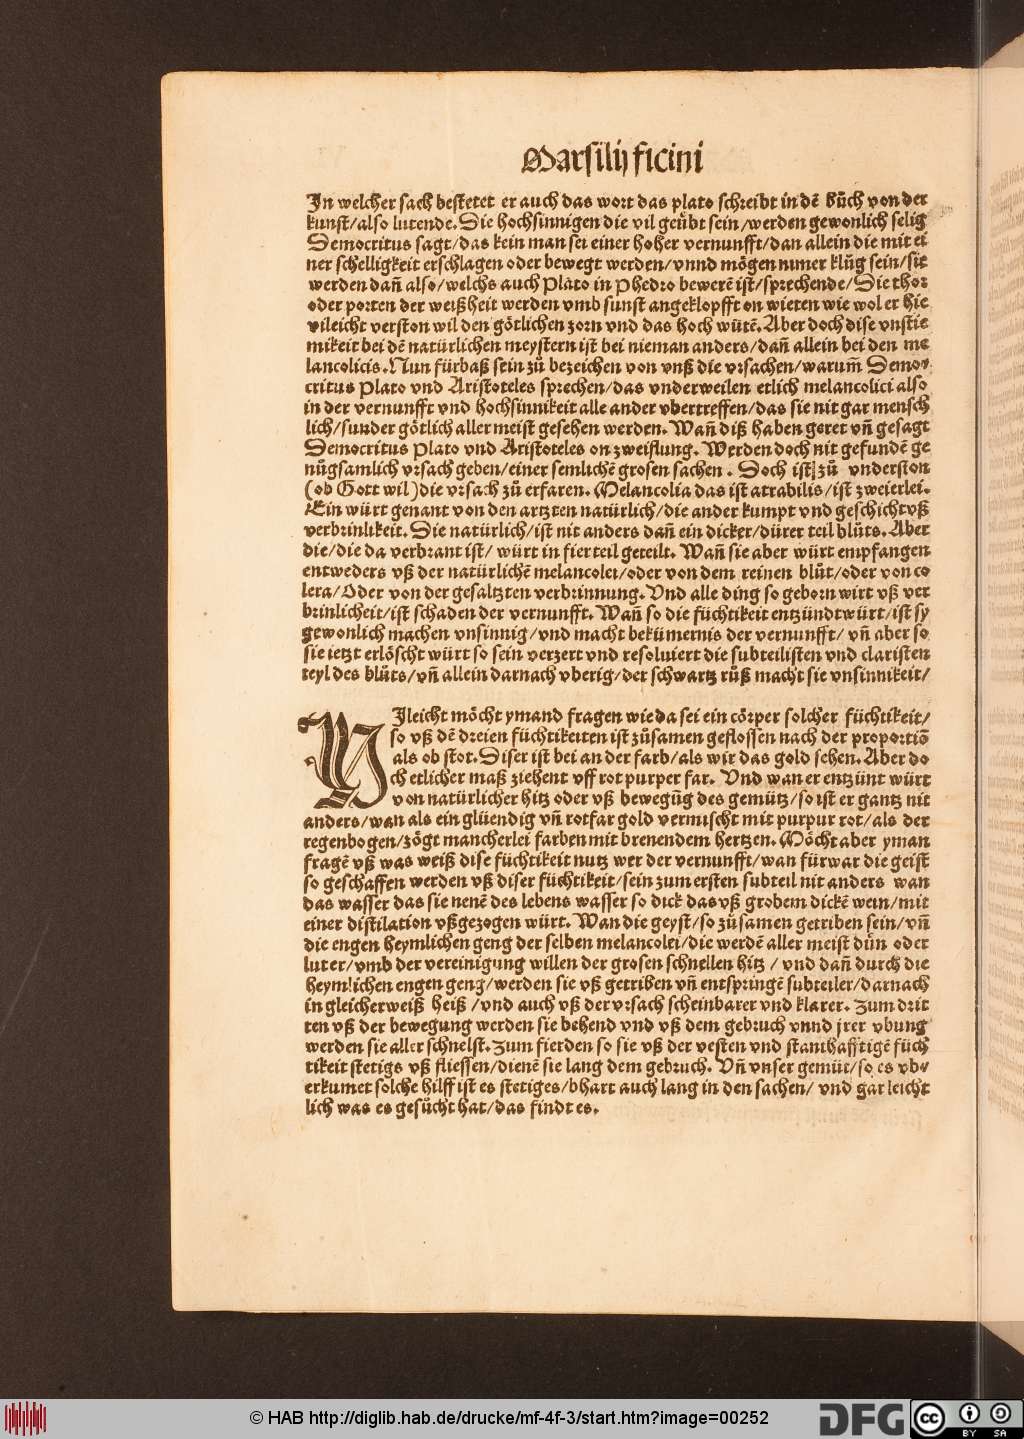 Marsilij ficini
In welcher sach bestetet er auch das wort das plato schreibt in dē bůch von der
kunst/also lutende. Die hochsinnigen die vil geübt sein/werden gewonlich selig
Democritus sagt/das kein man sei einer hoher vernunfft/dan allein die mit ei
ner schelligkeit erschlagen oder bewegt werden/vnnd mögen nimer klůg sein/sie
werden dañ also/welchs auch Plato in Phedro bewerē ist/sprechende/Die thor
oder porten der weißheit werden vmb sunst angeklopfft on wieten wie wol er hie
vileicht verston wil den götlichen zorn vnd das hoch wütē. Aber doch dise vnstie
mikeit bei dē natürlichen meystern ist bei nieman anders/dañ allein bei den me
lancolicis. Nun fürbaß sein zů bezeichen von vnß die vrsachen/warum̃ Demo-
critus Plato vnd Aristoteles sprechen/das vnderweilen etlich melancolici also
in der vernunfft vnd hochsinnikeit alle ander vbertreffen/das sie nit gar mensch
lich/sunder götlich aller meist gesehen werden. Wañ diß haben geret vñ gesagt
Democritus Plato vnd Aristoteles on zweiflung. Werden doch nit gefundē ge
nůgsamlich vrsach geben/einer semlichē grosen sachen. Doch ist zů vnderston
(ob Gott wil) die vrsach zů erfaren. Melancolia das ist atrabilis/ist zweierlei.
Ein würt genant von den artzten natürlich/die ander kumpt vnd geschicht vß
verbrinlikeit. Die natürlich/ist nit anders dañ ein dicker/dürer teil blůts. Aber
die/die da verbrant ist/ würt in fier teil geteilt. Wañ sie aber würt empfangen
entweders vß der natürlichē melancolei/oder von dem reinen blůt/oder von co
lera/Oder von der gesaltzten verbrinnung. Vnd alle ding so geborn wirt vß ver
brinlicheit/ist schaden der vernunfft. Wañ so die füchtikeit entzündt würt/ist sy
gewonlich machen vnsinnig/vnd macht bekümernis der vernunfft/ vñ aber so
sie ietzt erlöscht würt so sein verzert vnd resoluiert die subteilisten vnd claristen
teyl des blůts/vñ allein darnach vberig/der schwartz růß macht sie vnsinnikeit/
VIleicht möcht ymand fragen wie da sei ein cörper solcher füchtikeit/
so vß dē dreien füchtikeiten ist zůsamen geflossen nach der proportiō
als ob stot. Diser ist bei an der farb/als wir das gold sehen. Aber do
ch etlicher maß ziehent vff rot purper far. Vnd wan er entzünt würt
von natürlicher hitz oder vß bewegūg des gemütz/so ist er gantz nit
anders/wan als ein glüendig vñ rotfar gold vermischt mit purpur rot/als der
regenbogen/zögt mancherlei farben mit brenendem hertzen. Möcht aber yman
fragē vß was weiß dise füchtikeit nutz wer der vernunfft/wan fürwar die geist
so geschaffen werden vß diser füchtikeit/sein zum ersten subteil nit anders wan
das wasser das sie nenē des lebens wasser so dick das vß grobem dickē wein/mit
einer distilation vßgezogen würt. Wan die geyst/so zůsamen getriben sein/vñ
die engen heymlichen geng der selben melancolei/die werdē aller meist dün oder
luter/vmb der vereinigung willen der grosen schnellen hitz / vnd dañ durch die
heymlichen engen geng/werden sie vß getriben vñ entspringē subteiler/darnach
in gleicherweiß heiß /vnd auch vß der vrsach scheinbarer vnd klarer. Zum drit
ten vß der bewegung werden sie behend vnd vß dem gebruch vnnd jrer vbung
werden sie aller schnelst. Zum fierden so sie vß der vesten vnd stanthafftigē füch
tikeit stetigs vß fliessen/dienē sie lang dem gebruch. Vñ vnser gemüt/so es vb-
erkumet solche hilff ist es stetiges/bhart auch lang in den sachen/ vnd gar leicht
lich was es gesůcht hat/das findt es.
© HAB http://diglib.hab.de/drucke/mf-4f-3/start.htm?image=00252
DFG
cc BY SA